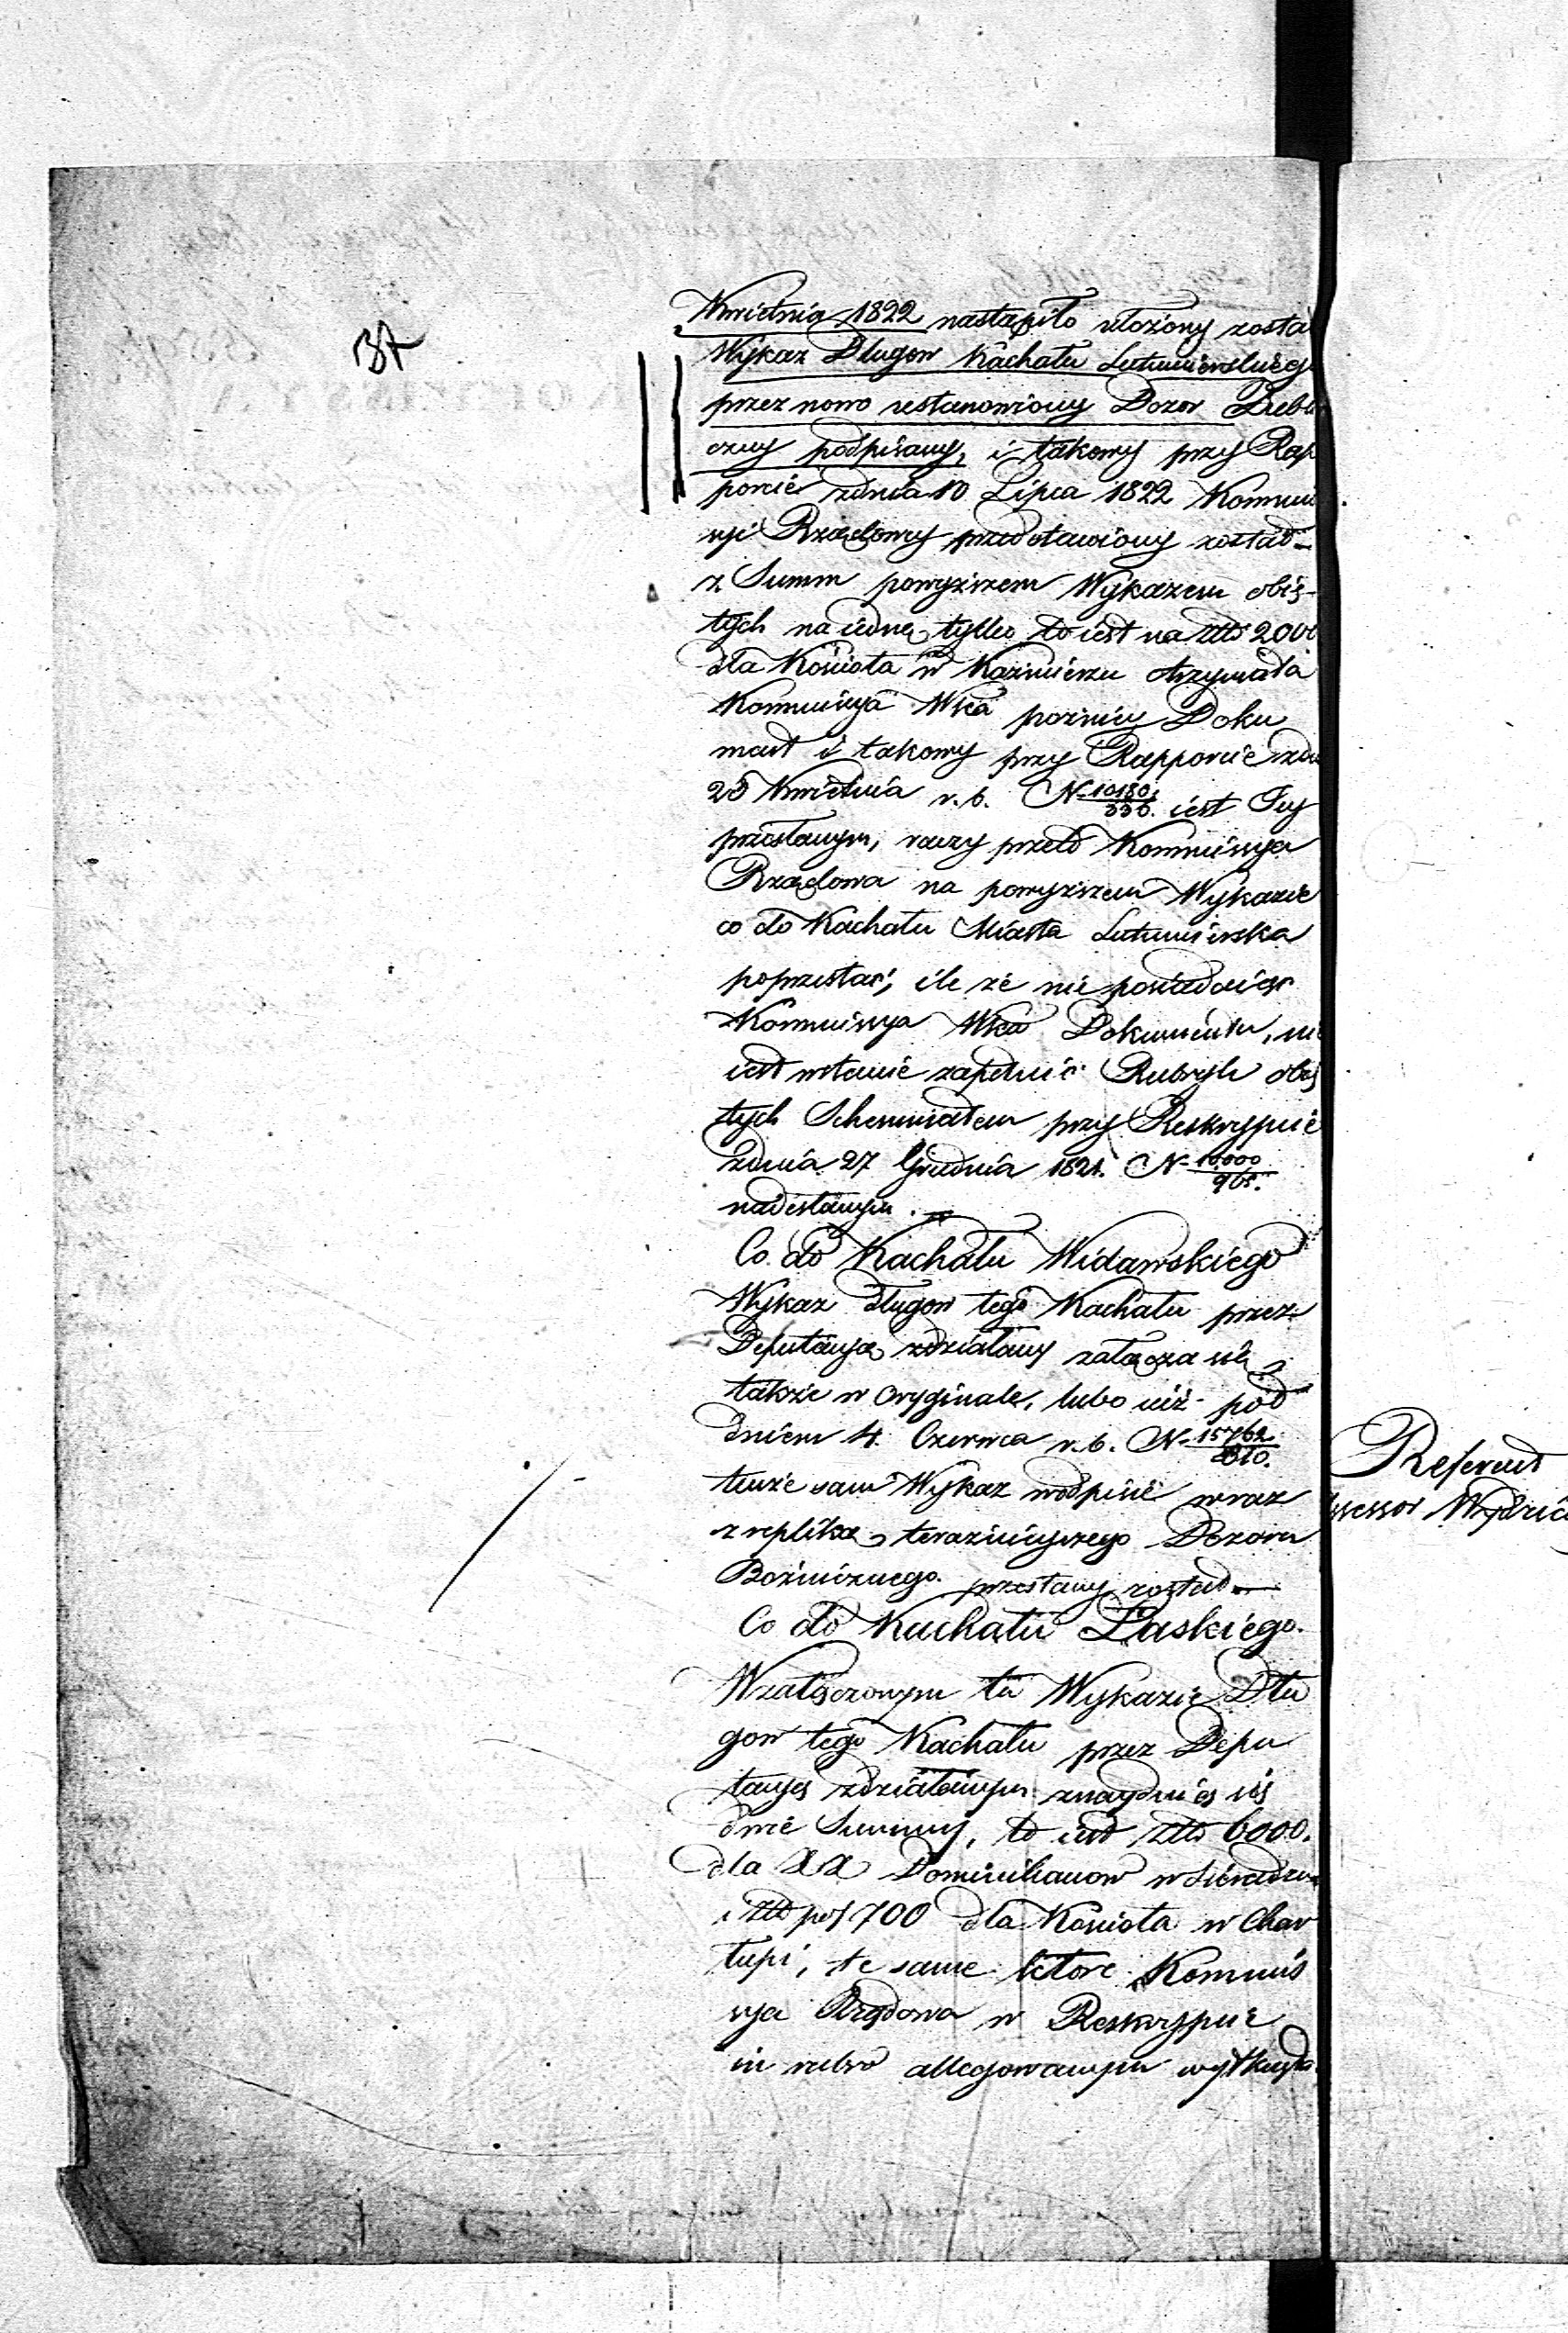 Kwietnia 1822 nastąpiło ułożony zosta
Wykaz Długow Kachału Lutumierskieg
przez nowo ustanowiony Dozor
czny podpisany, i takowy przy Rap
porcie zdnia 10 Lipca 1822 Kommis
syi Rządowey przedstawiony został –
z Summ powyższem Wykazem obię-
tych na iedną tylko to iest na Złt 2000
dla Kościoła w Kazimierzu otrzymała
Kommissya Wka poźniey Doku
ment i takowy przy Rapporcie zdn
25 Kwietnia r. b. N 10180/336. iest Jey
przesłanym, raczy przeto Kommissya
Rządowa na powyższem Wykazie
co do Kachału Miasta Lutumierska
poprzestać, ile że nie posiadaiąc
Kommissya Wka Dokumentu, nie
iest wstanie zapełnić Rubryk obię
tych Schemmatem przy Reskrypcie
zdnia 27 Grudnia 1821. N 10000/965.
nadesłanym. –
Co do Kachału Widawskiego
Wykaz długow tego Kachału przez
Deputacyą zdziałany załącza się
także w oryginale, lubo iuż pod
dniem 4. Czerwca r. b. N 15762/810.
tenże sam Wykaz wodpisie wraz
z repliką terazнieyszego Dozoru
Bożniczego przesłany został –
Co do Kachału Łaskiego.
Wzałączonym tu Wykazie Dłu
gow tego Kachału przez Depu
tacyą zdziałanym znayduią się
dwie Summy, to iest Złt 6000.
dla XX Dominikanow w Sieradzu
i Złt pol 700 dla Kościoła w Char
łupi, te same ktore Kommis
sya Rządowa w Reskrypcie
in rubro allegowanym wytknęła
Referent
ssessor